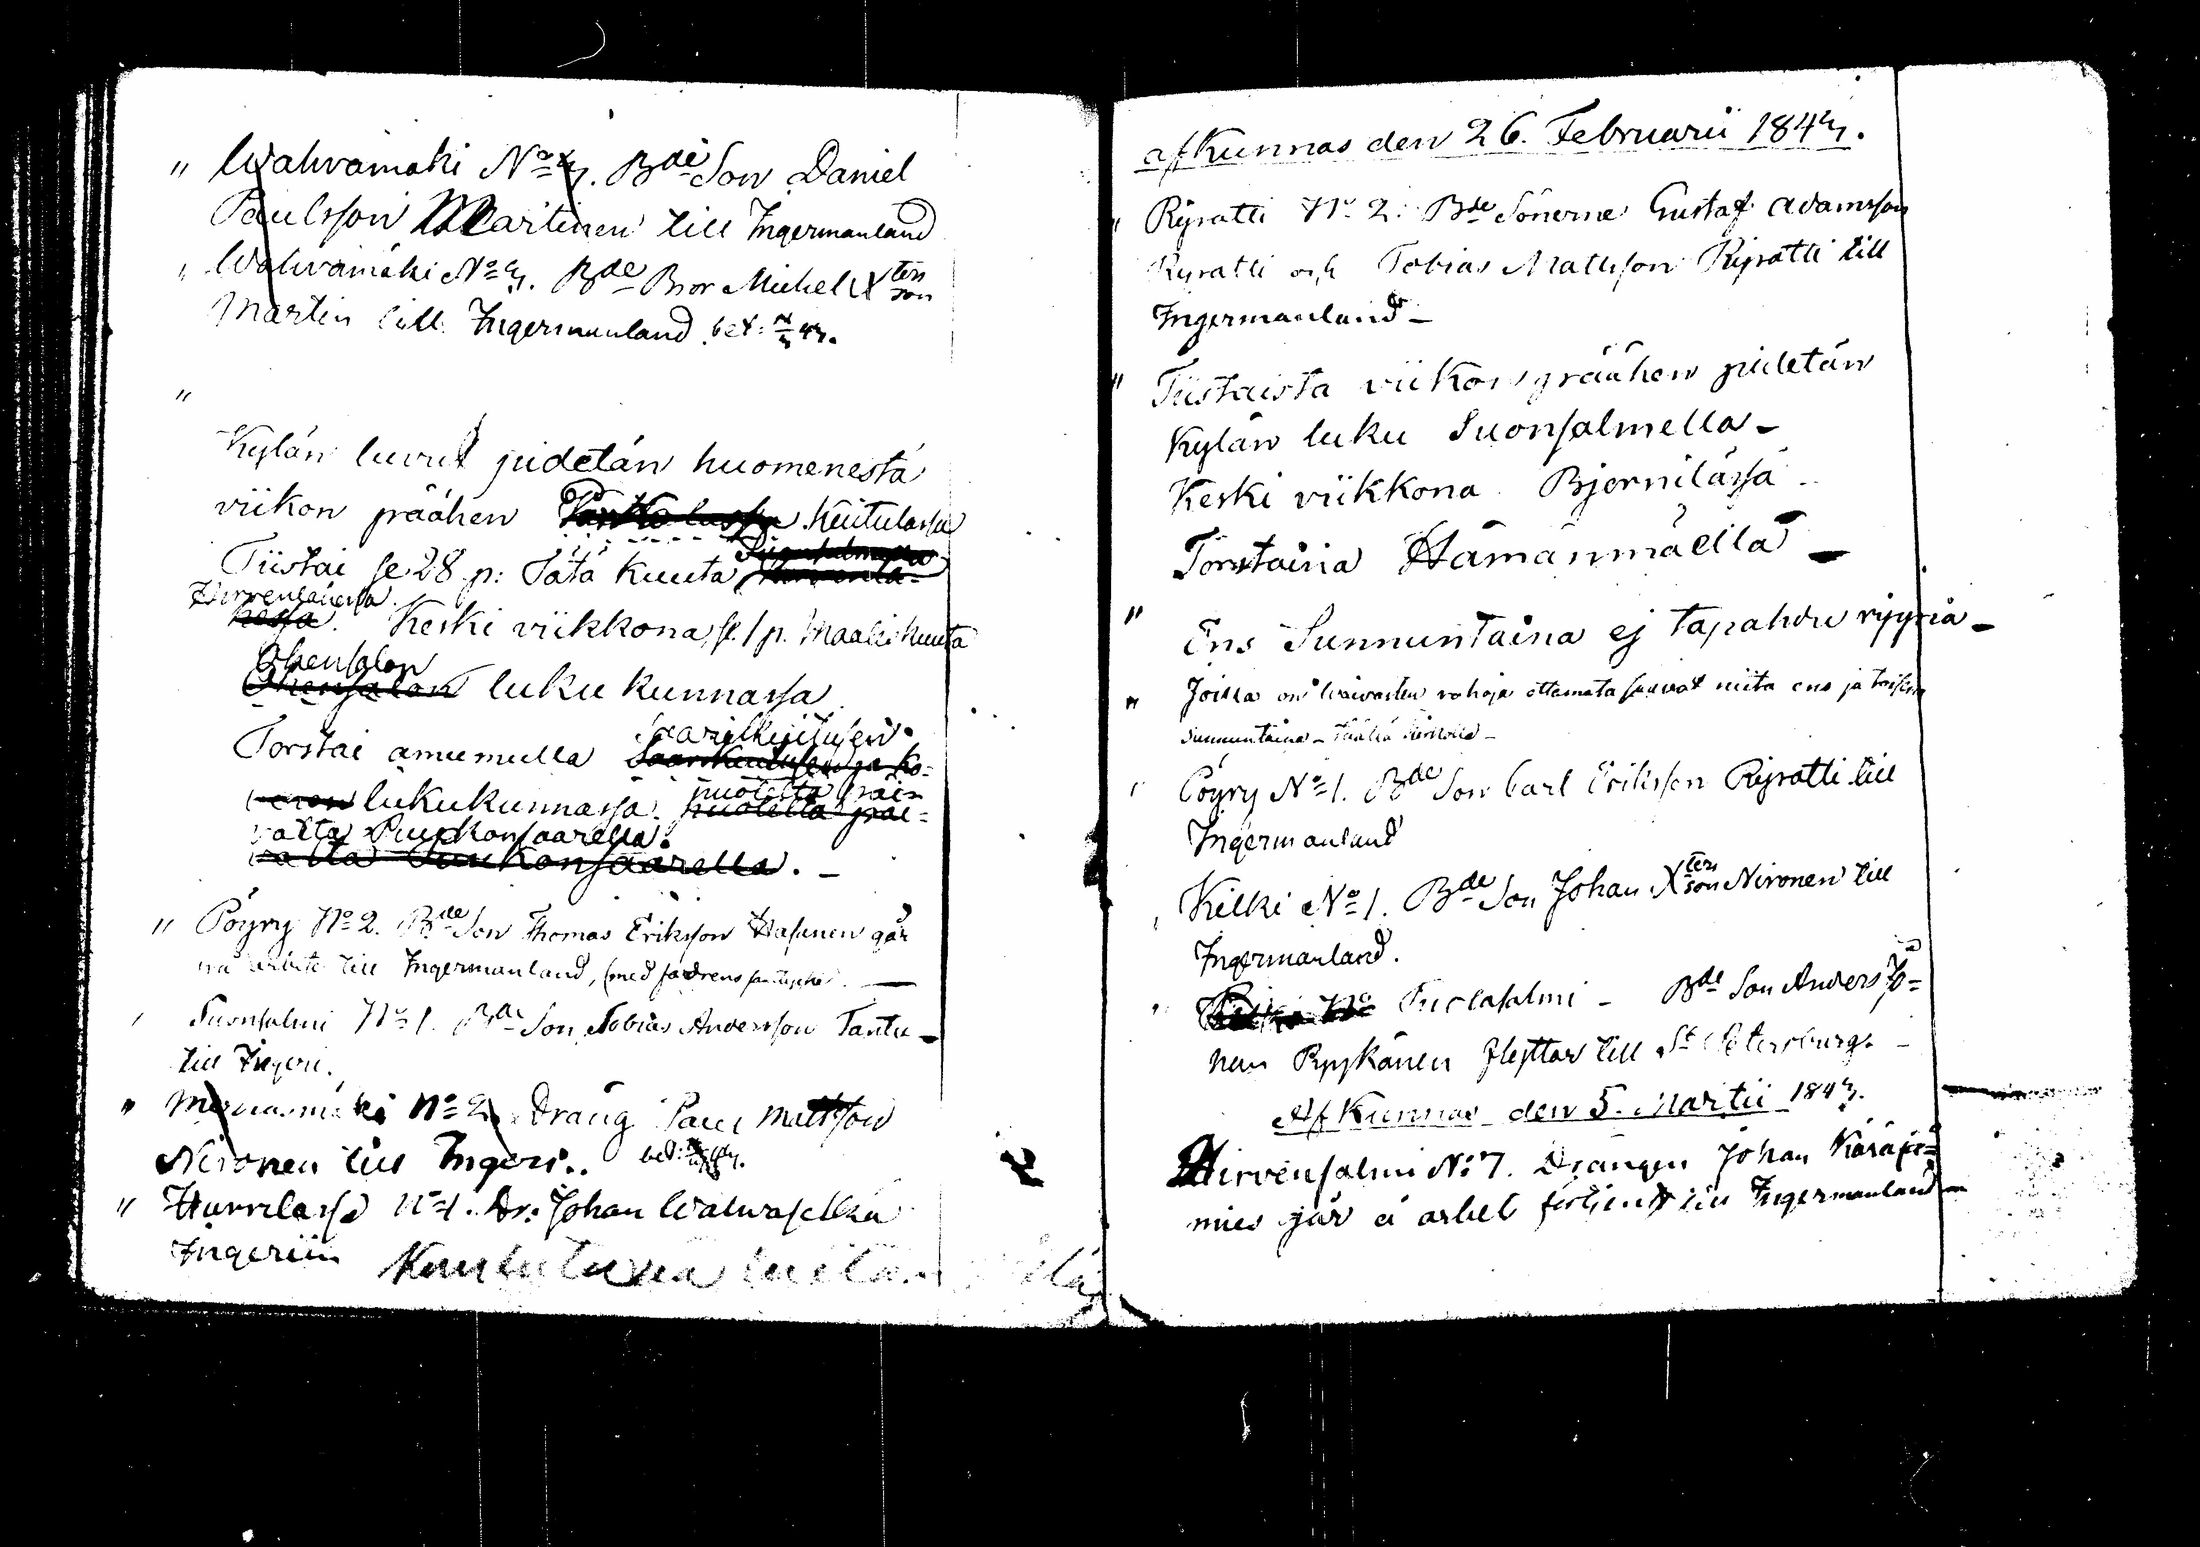 " Wahvamäki No 3. Bde Son Daniel
Paulsson Martinen till Ingermanland
" Wahvamäki No 3. Bde Bror Michel Xtersson
Martin till Ingermanland bet:
"
Kylän luvut pidetän huomenesta
viikon päähen Kuitulassa
Tiistai se 28 p: Tätä Kuuta
Hirvenlahessa
Keski viikkona se 1 p. Maalis Kuuta
Ohensalon
Ohensalon luku kunnassa
Torstai amumulla
lukukunnassa. puolelta päi=
vältä Puukonsaarella.
valta Puukonsaarella. –
" Pöyry No 2. Bde Son Thomas Eriksson Hasunen går
på arbete till Ingermanland, (med fadrens
Suonsalmi No 1. Bde Son Tobias Andersson Tantu –
till Ingeri.
" No 2. Dräng Paul Mattson
Nironen till Ingeri.. bet:
" Hurrilassa No 1. Dr: Johan Walwaselkä
Ingeriin
afkunnas den 26. Februarii 1843.
" Ryratti No 2. Bde Sönerne Gustaf Adamsson
Ryratti och Tobias Mattsson Ryratti till
Ingermanland –
" Tiistaista viikon päähen pidetän
Kylän luku Suonsalmella –
Keski viikkona Bjornilässä –
Torstaina Hämänmäellä –
" Ens Sunnuntaina ej tapahdu ryypiä –
" Joissa on vaivasten rahoja ottamata saavat niitä ens ja toisena
sunnuntaina – täällä
Pöyry No 1. Bde Son Carl Eriksson Ryratti till
Ingermanland
Kilki No 1. Bde Son Johan Xtersson Nironen till
Ingermanland.
Kilki No Tuolasalmi – Bde Son Anders Jo=
han Pyykänen flyttar till St Petersburg. –
Af Kunnas den 5. Martii 1843.
Hirvensalmi No 7. Drängen Johan
mies går å arbets förtjenst till Ingermanland –